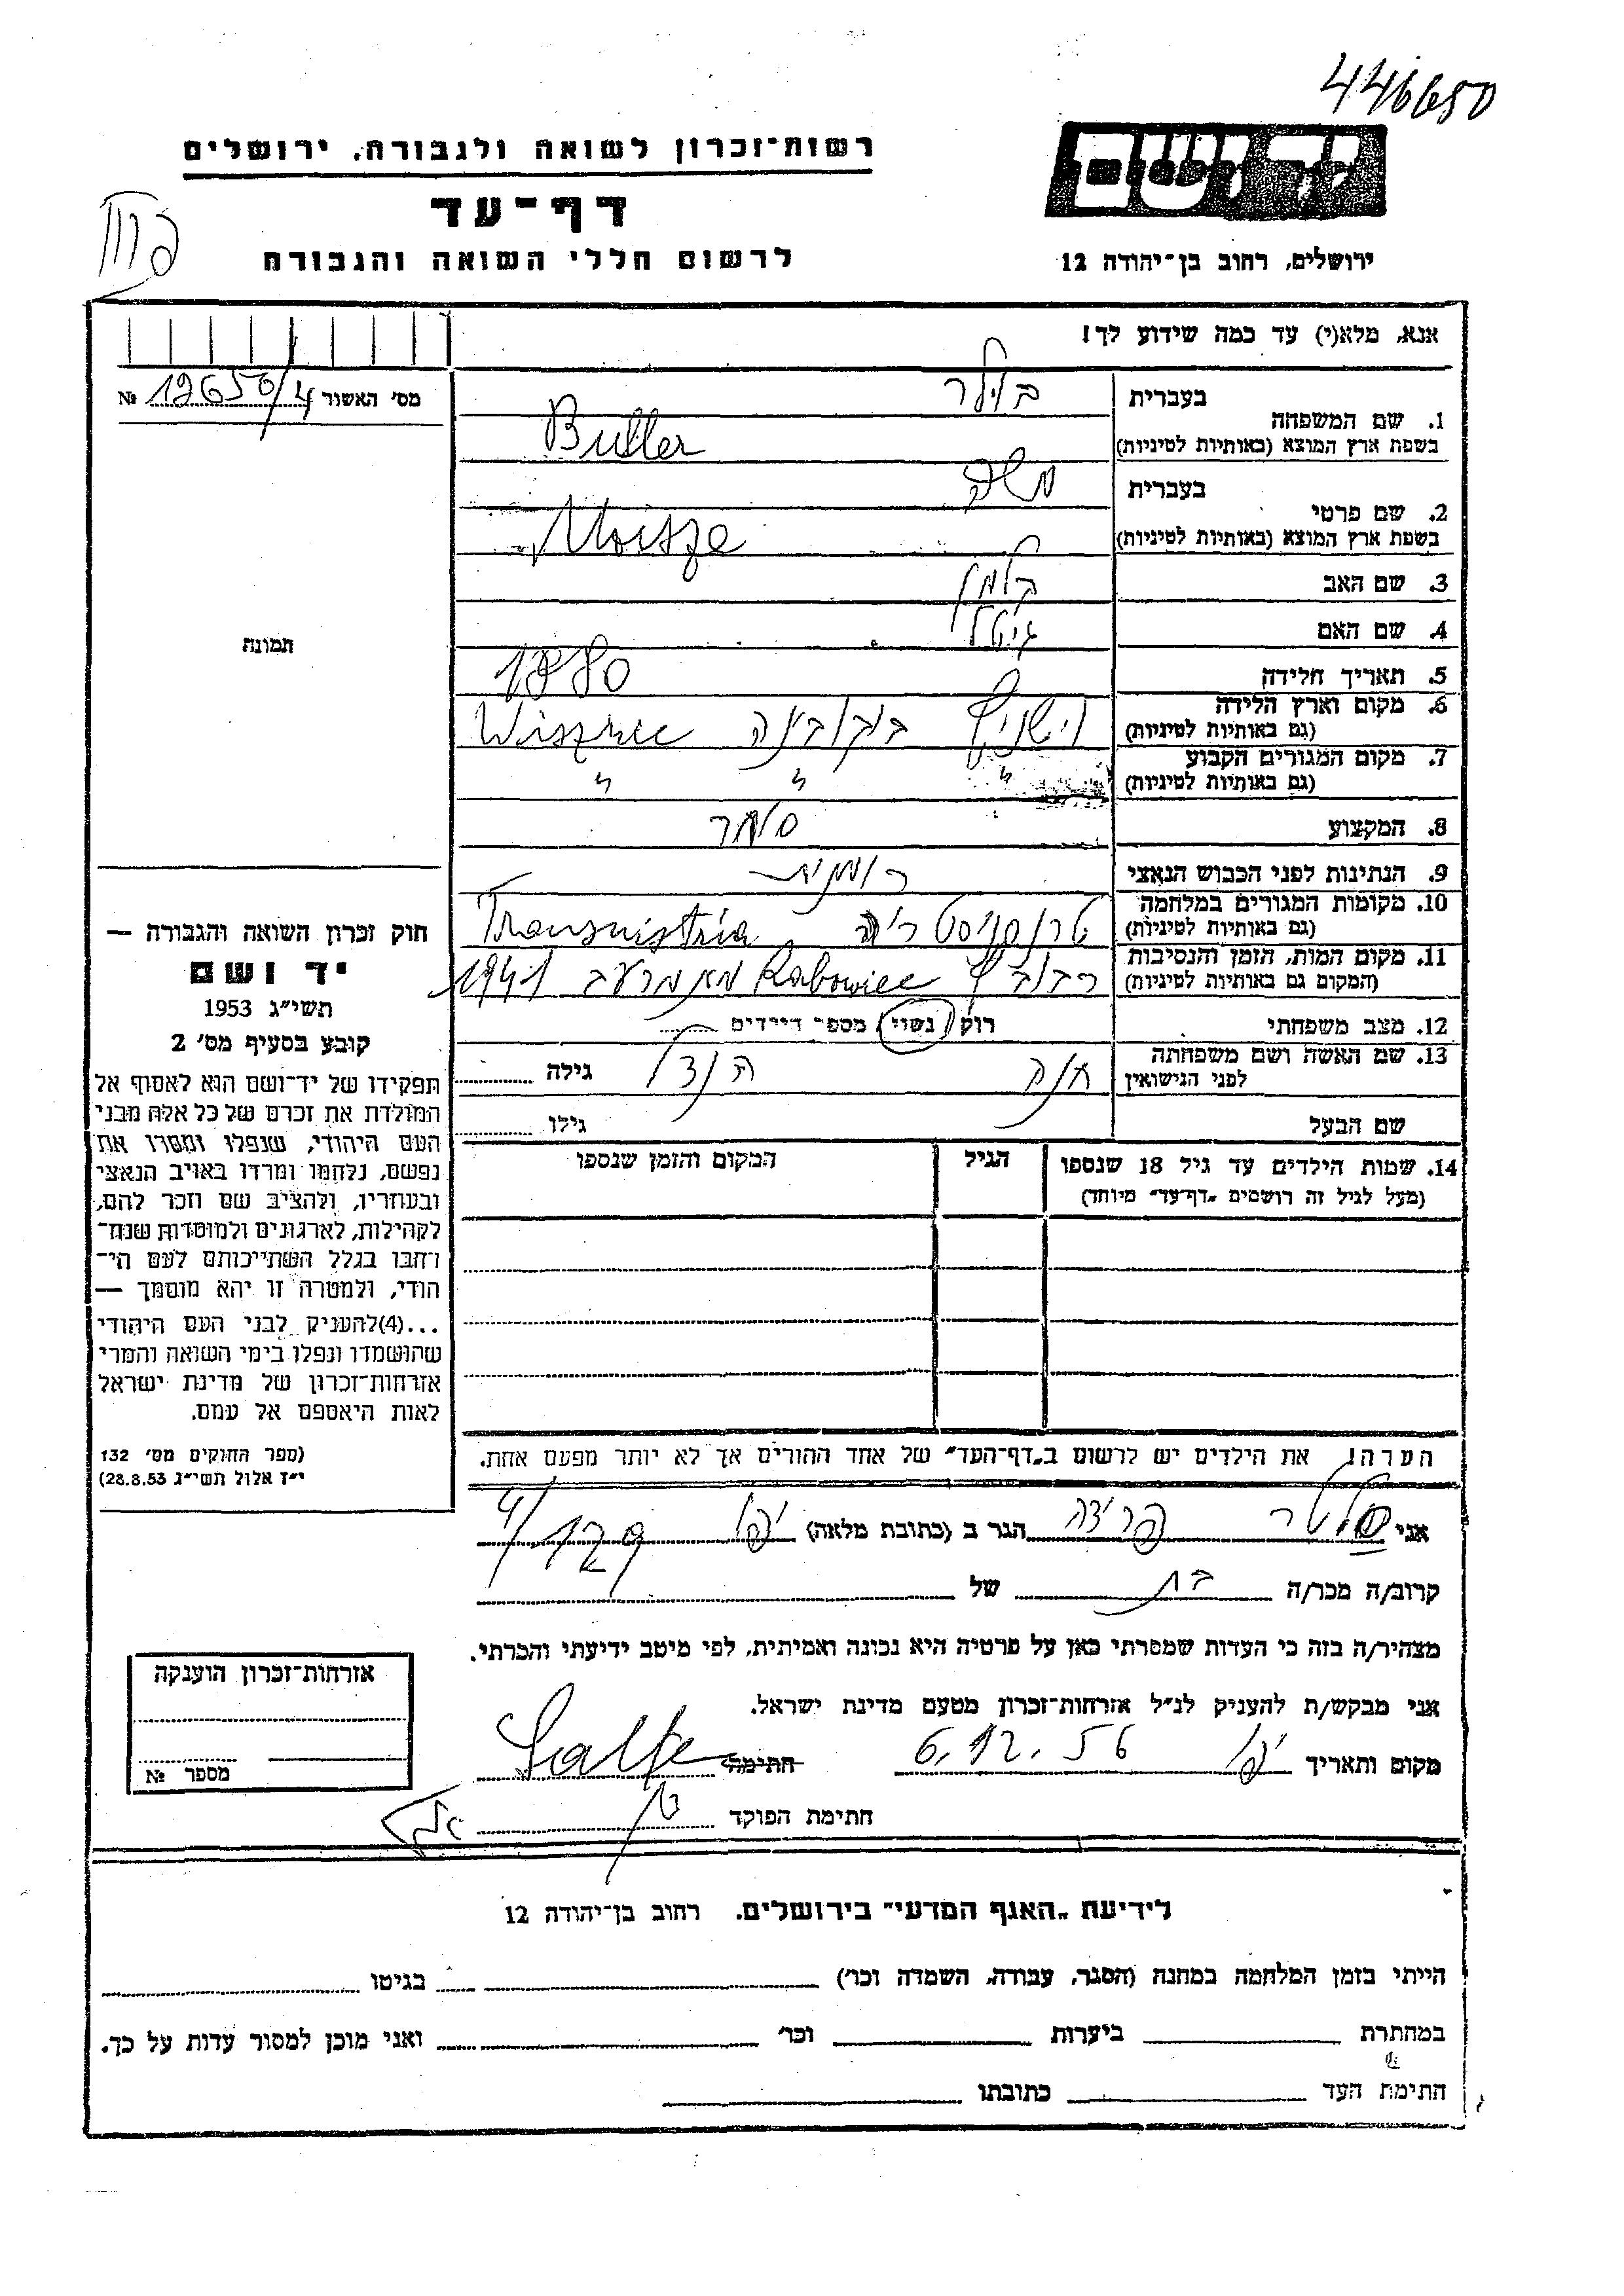 446650
רשות־זכרון לשואה ולגבורה, ירושלים
יד ושם
דף־עד
לרשום חללי השואה והגבורה
ירושלים, רחוב בן־יהודה 12
אנא, מלא(י) עד כמה שידוע לך!
מס׳ האשור 12650/4 №
1. שם המשפחה
בעברית בילר
בשפת ארץ המוצא (באותיות לטיניות) Buller
2. שם פרטי
בעברית משה
בשפת ארץ המוצא (באותיות לטיניות) Moisze
3. שם האב קלמן
4. שם האם גיטל
5. תאריך הלידה 1880
6. מקום וארץ הלידה וישניץ בוקובינה
(גם באותיות לטיניות) Wisznec
7. מקום המגורים הקבוע " " "
(גם באותיות לטיניות)
8. המקצוע סוחר
9. הנתינות לפני הכבוש הנאצי רומנית
10. מקומות המגורים במלחמה טרנסניסטריה
(גם באותיות לטיניות) Transnistria
11. מקום המות, הזמן והנסיבות Rabowiec מת מרעב 1941
(המקום גם באותיות לטיניות)
12. מצב משפחתי רווק / נשוי / מספר הילדים
13. שם האשה ושם משפחתה חנה גילה
לפני הנישואין
שם הבעל גילו
14. שמות הילדים עד גיל 18 שנספו הגיל המקום והזמן שנספו
(מעל לגיל זה רושמים „דף־עד״ מיוחד)
הערה! את הילדים יש לרשום ב„דף־העד״ של אחד ההורים אך לא יותר מפעם אחת.
תמונה
חוק זכרון השואה והגבורה —
יד ושם
תשי״ג 1953
קובע בסעיף מס׳ 2
תפקידו של יד־ושם הוא לאסוף אל
המולדת את זכרם של כל אלה מבני
העם היהודי, שנפלו ומסרו את
נפשם, נלחמו ומרדו באויב הנאצי
ובעוזריו, ולהציב שם וזכר להם,
לקהילות, לארגונים ולמוסדות שנח־
רבו בגלל השתייכותם לעם הי־
הודי, ולמטרה זו יהא מוסמך —
...(4)להעניק לבני העם היהודי
שהושמדו ונפלו בימי השואה והמרי
אזרחות־זכרון של מדינת ישראל
לאות היאספם אל עמם.
(ספר החוקים מס׳ 132
י״ז אלול תשי״ג 28.8.53)
אני פרידה הגר ב (כתובת מלאה) יפו 129/4
קרוב/ה מכר/ה בת של
מצהיר/ה בזה כי העדות שמסרתי כאן על פרטיה היא נכונה ואמיתית, לפי מיטב ידיעתי והכרתי.
אני מבקש/ת להעניק לנ״ל אזרחות־זכרון מטעם מדינת ישראל.
מקום ותאריך יפו 6.12.56 חתימה
חתימת הפוקד
אזרחות־זכרון הוענקה
מספר №
לידיעת „האגף המדעי״ בירושלים. רחוב בן־יהודה 12
הייתי בזמן המלחמה במחנה (הסגר, עבודה, השמדה וכו׳) בגיטו
במחתרת ביערות וכו׳ ואני מוכן למסור עדות על כך.
חתימת העד כתובתו